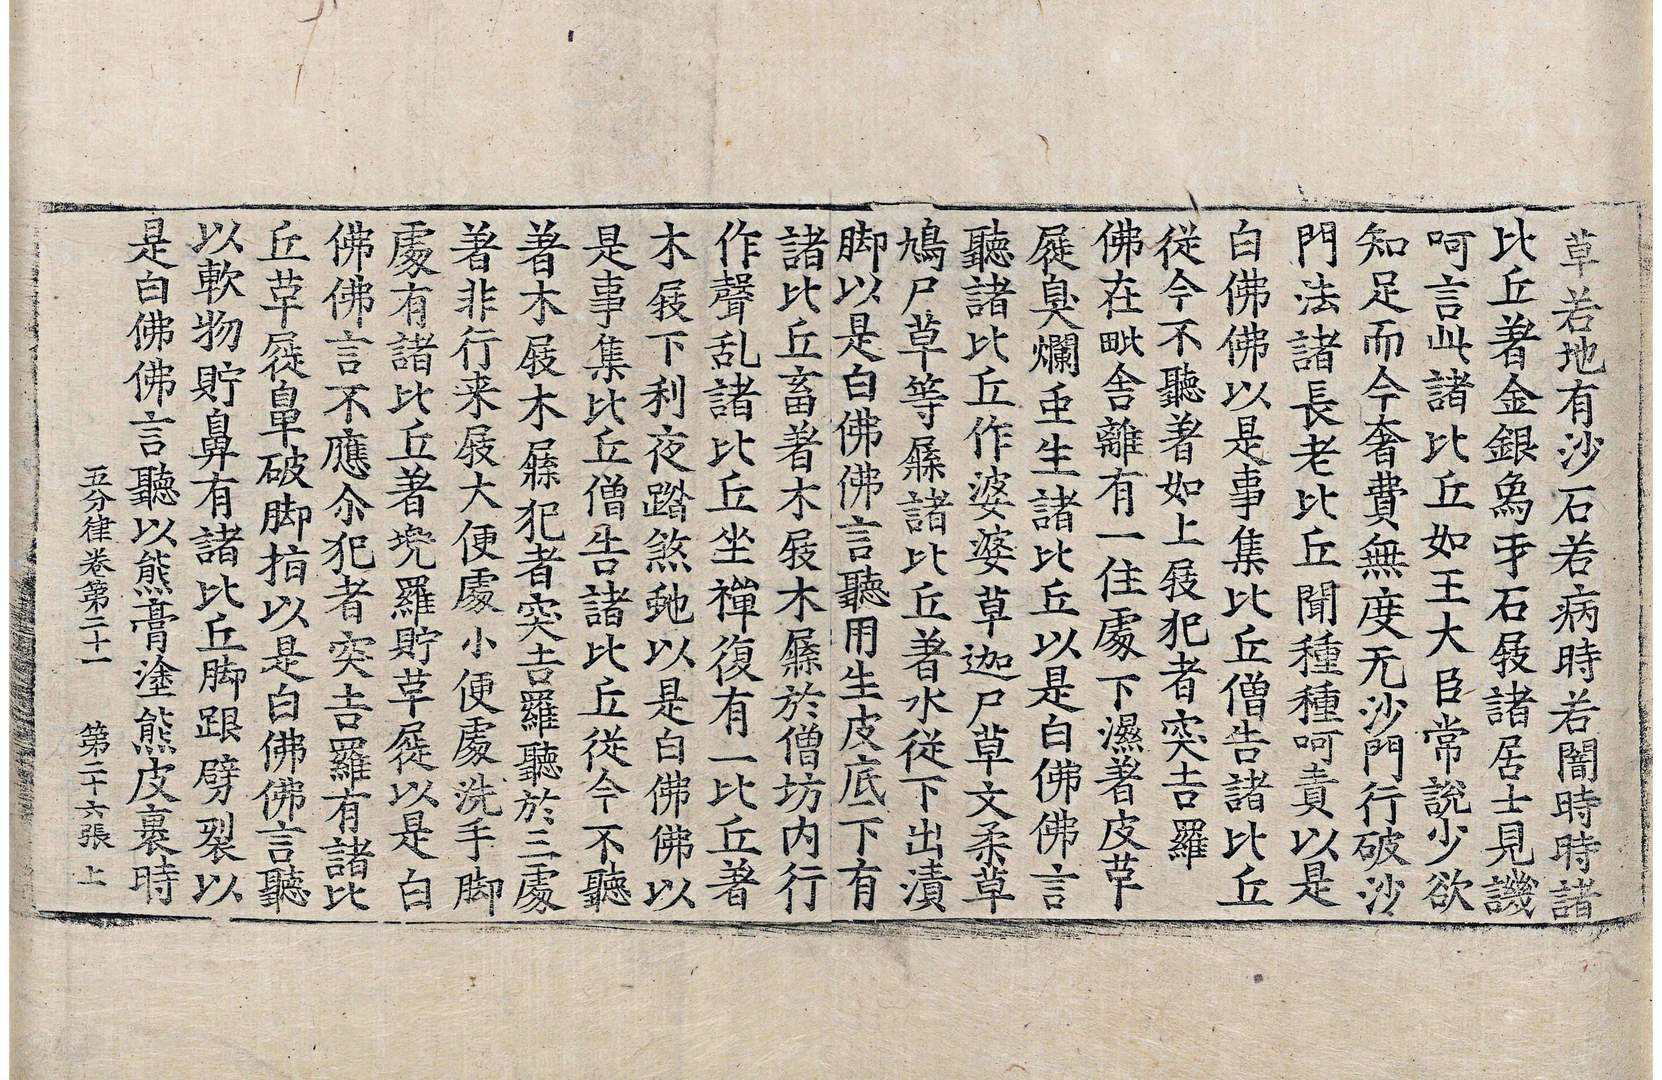 草若地有沙石若病時若闇時時諸
比丘著金銀爲寽石屐諸居士見譏
呵言此諸比丘如王大臣常說少欲
知足而今奢費無度无沙門行破沙
門法諸長老比丘聞種種呵責以是
白佛佛以是事集比丘僧告諸比丘
從今不聽著如上屐犯者突吉羅
佛在毗舍離有一住處下濕著皮草
屣臭爛虫生諸比丘以是白佛佛言
聽諸比丘作婆婆草迦尸草文柔草
鳩尸草等屧諸比丘著水從下出漬
脚以是白佛佛言聽用生皮底下有
諸比丘畜著木屐木屧於僧坊內行
作聲乱諸比丘坐禪復有一比丘著
木屐下利夜蹹煞虵以是白佛佛以
是事集比丘僧告諸比丘從今不聽
著木屐木屧犯者突吉羅聽於三處
著非行来屐大便處小便處洗手脚
處有諸比丘著兠羅貯草屣以是白
佛佛言不應尒犯者突吉羅有諸比
丘草屣鼻破脚指以是白佛佛言聽
以軟物貯鼻有諸比丘脚跟劈裂以
是白佛佛言聽以熊膏塗熊皮裹時
五分律卷第二十一 第二十六張 上